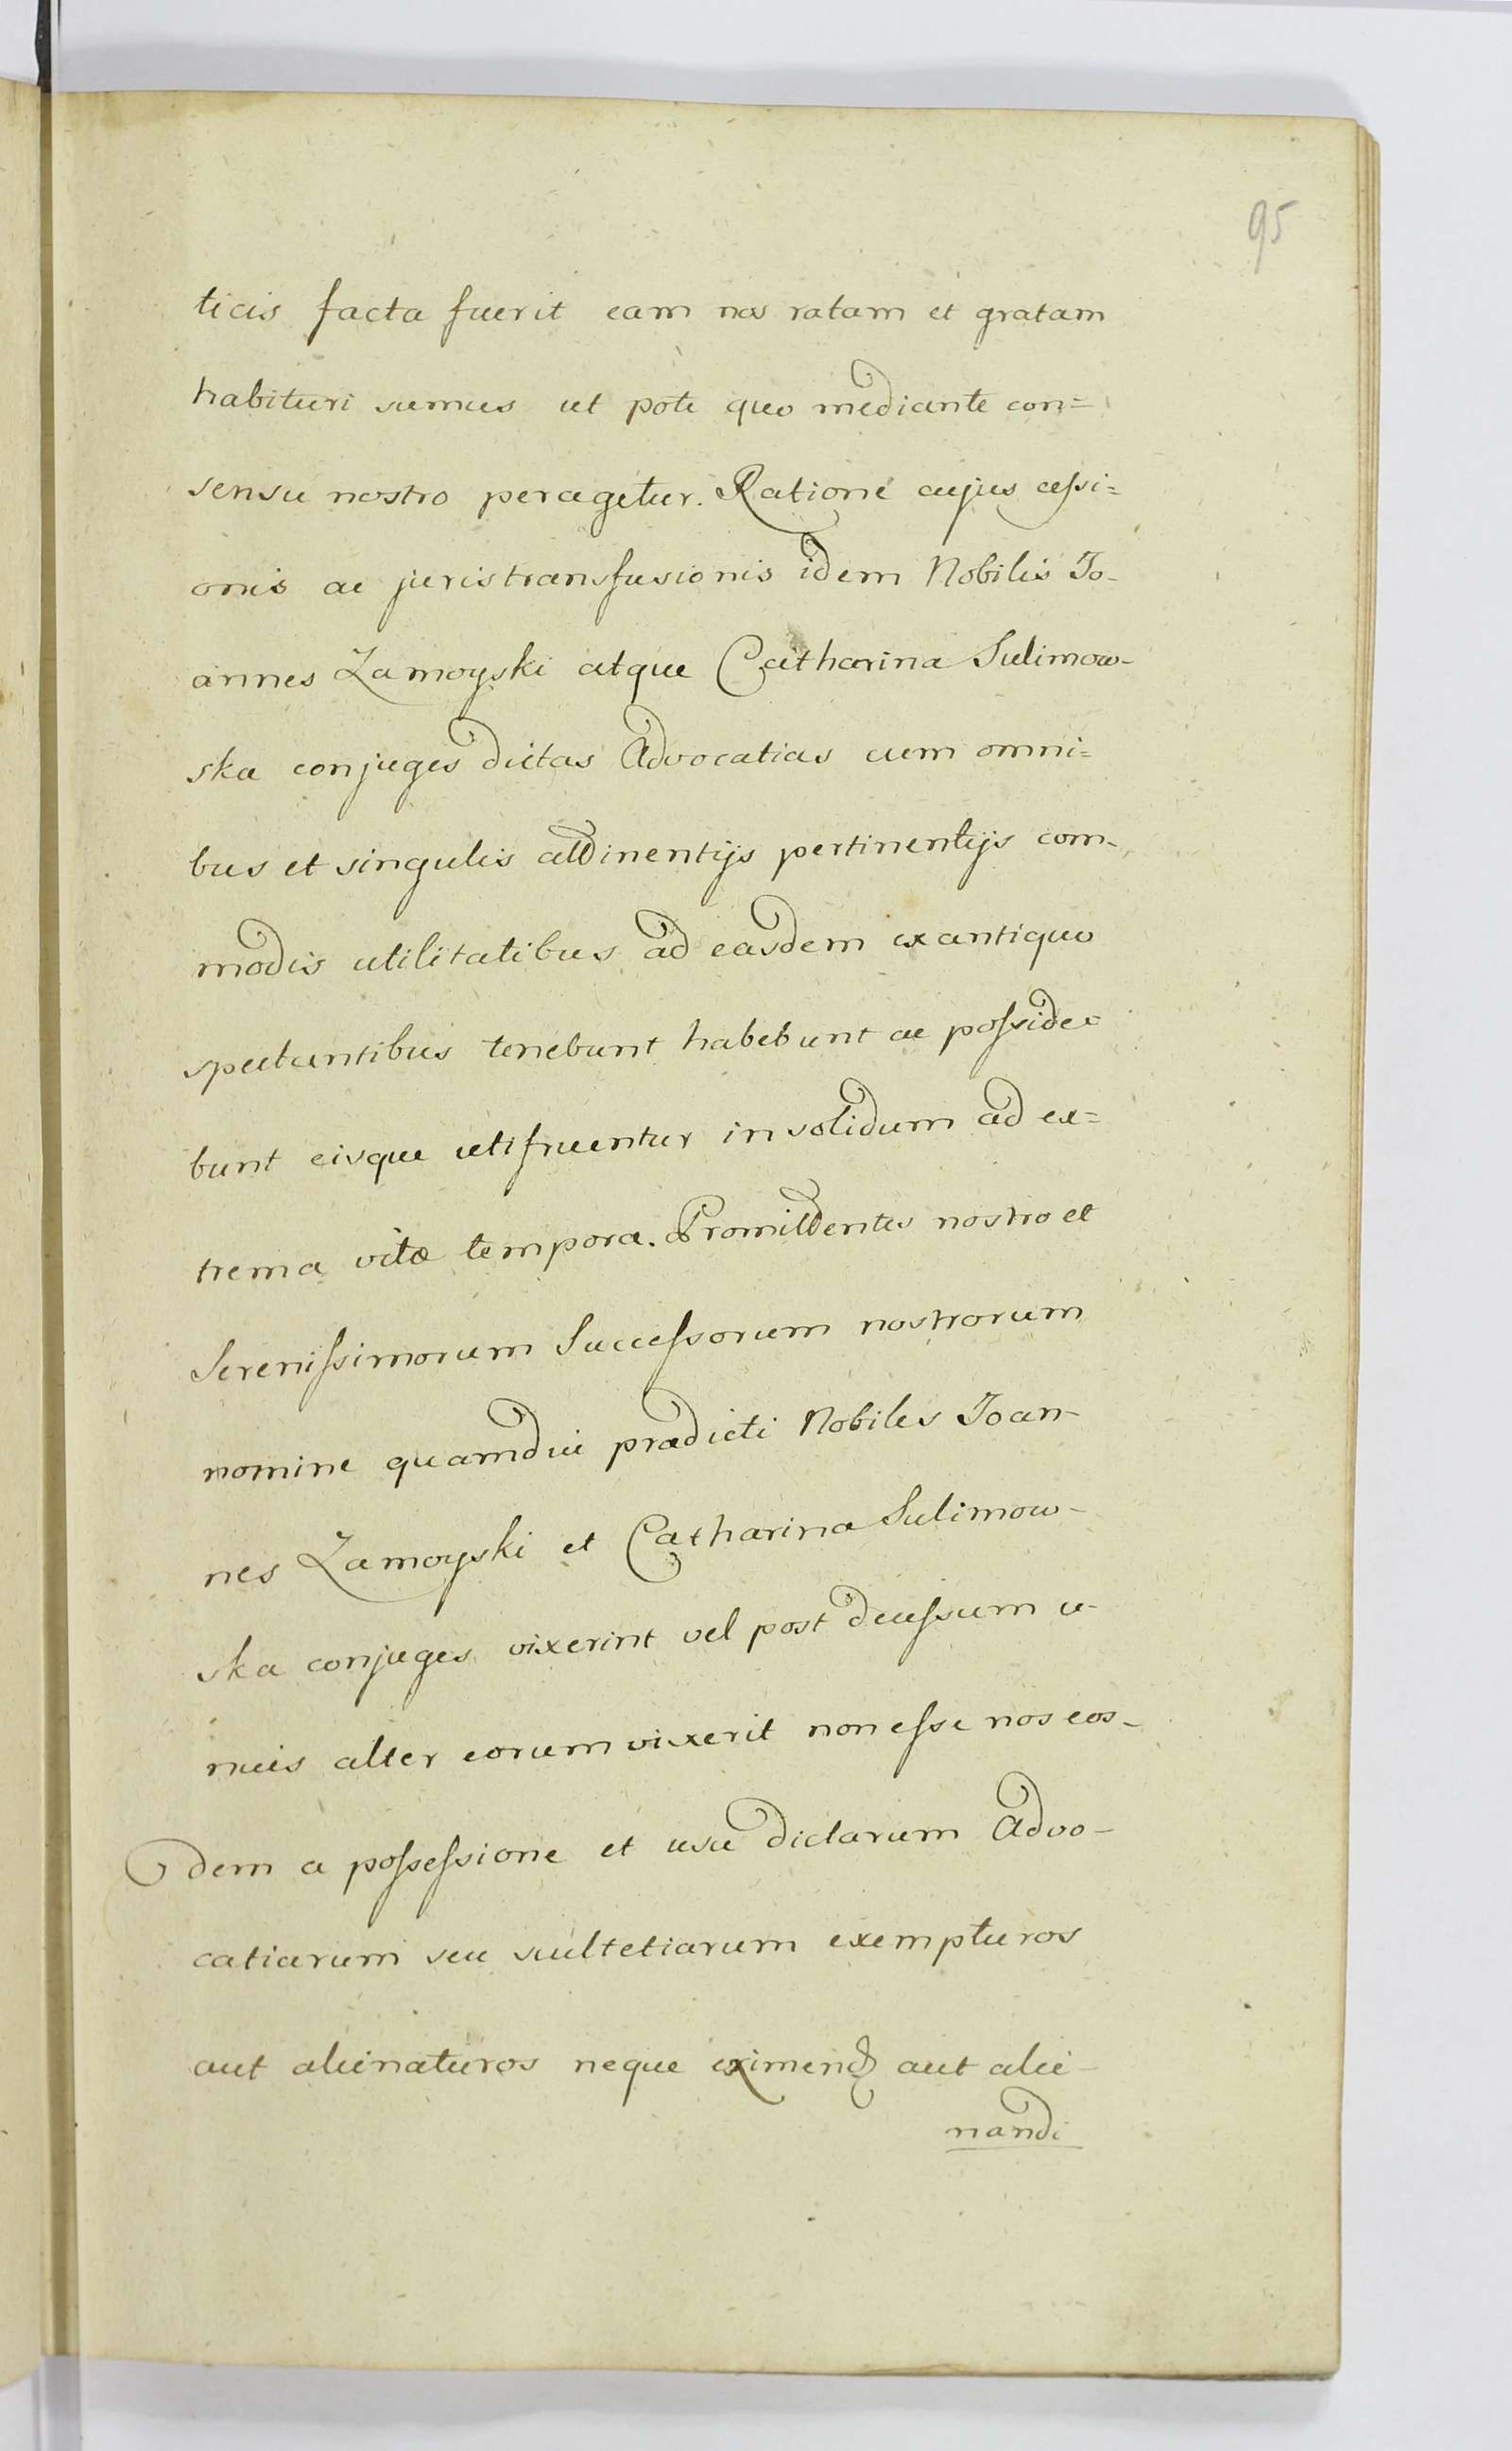 95
ticis facta fuerit eam nos ratam et gratam
habituri sumus ut pote quo mediante con=
sensu nostro peragetur. Ratione cujus cessi=
onis ac juristransfusionis idem Nobilis Jo-
annes Zamoyski atque Catharina Sulimow-
ska conjuges dictas Advocatias cum omni=
bus et singulis attinentijs pertinentijs com-
modis utilitatibus ad easdem ex antiquo
spectantibus tenebunt habebunt ac posside=
bunt eisque utifruentur in solidum ad ex=
trema vitæ tempora. Promittentes nostro et
Serenissimorum Successorum nostrorum
nomine quamdiu prædicti Nobiles Joan-
nes Zamoyski et Catharina Sulimow-
ska conjuges vixerint vel post decessum u-
nius alter eorum vixerit non esse nos eos-
dem a possessione et usu dictarum Advo-
catiarum seu scultetiarum exempturos
aut alienaturos neque eximendi aut alie-
nandi